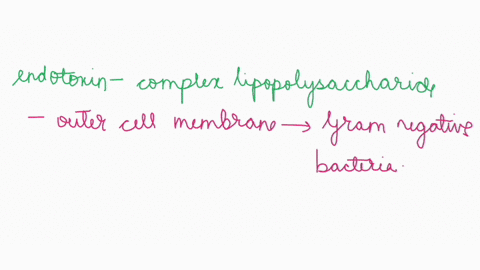 endotoxin - complex lipopolysaccharide
- outer cell membrane → Gram negative
bacteria.